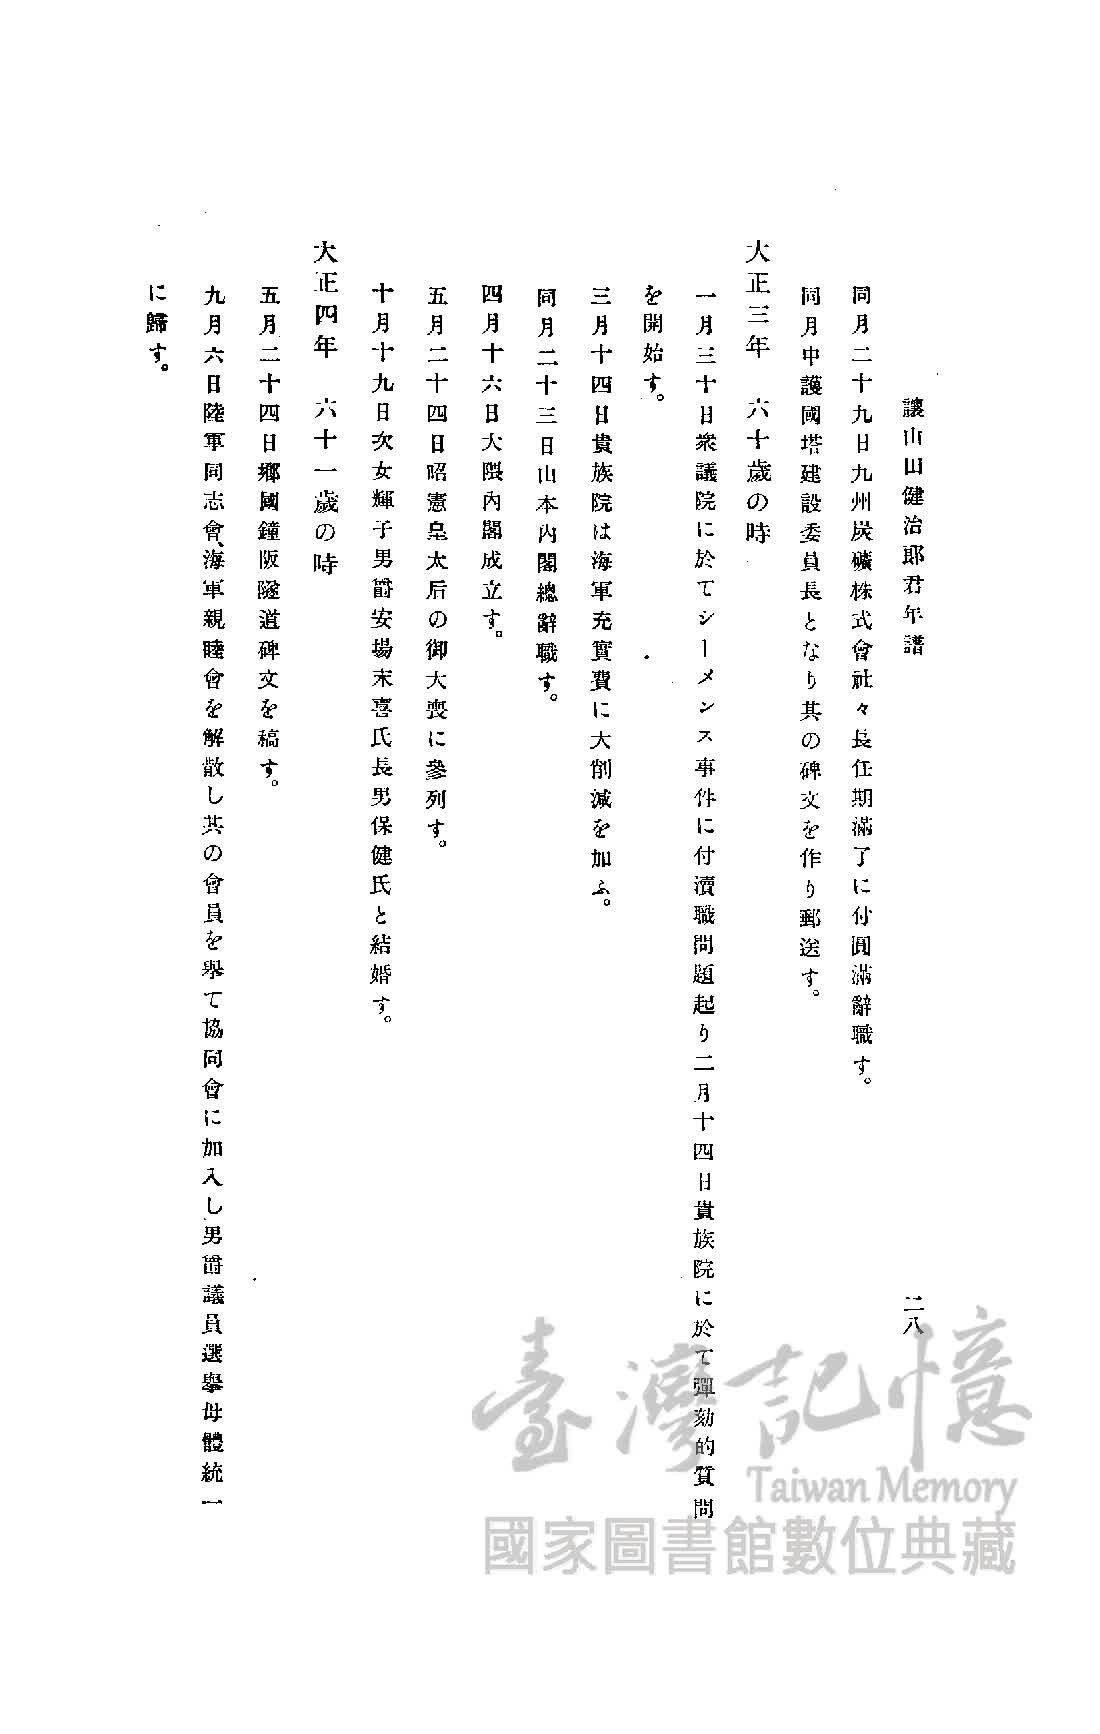 讓山田健治郎君年譜
二八
同月二十九日九州炭礦株式會社々長任期滿了に付圓滿辭職す。
同月中護國塔建設委員長となり其の碑文を作り郵送す。
大正三年　六十歲の時
一月三十日衆議院に於てシーメンス事件に付瀆職問題起り二月十四日貴族院に於て彈劾的質問
を開始す。
三月十四日貴族院は海軍充實費に大削減を加ふ。
同月二十三日山本內閣總辭職す。
四月十六日大隈內閣成立す。
五月二十四日昭憲皇太后の御大喪に參列す。
十月十九日次女輝子男爵安場末喜氏長男保健氏と結婚す。
大正四年　六十一歲の時
五月二十四日鄕國鐘阪隧道碑文を稿す。
九月六日陸軍同志會、海軍親睦會を解散し其の會員を擧て協同會に加入し男爵議員選擧母體統一
に歸す。
臺灣記憶
Taiwan Memory
國家圖書館數位典藏